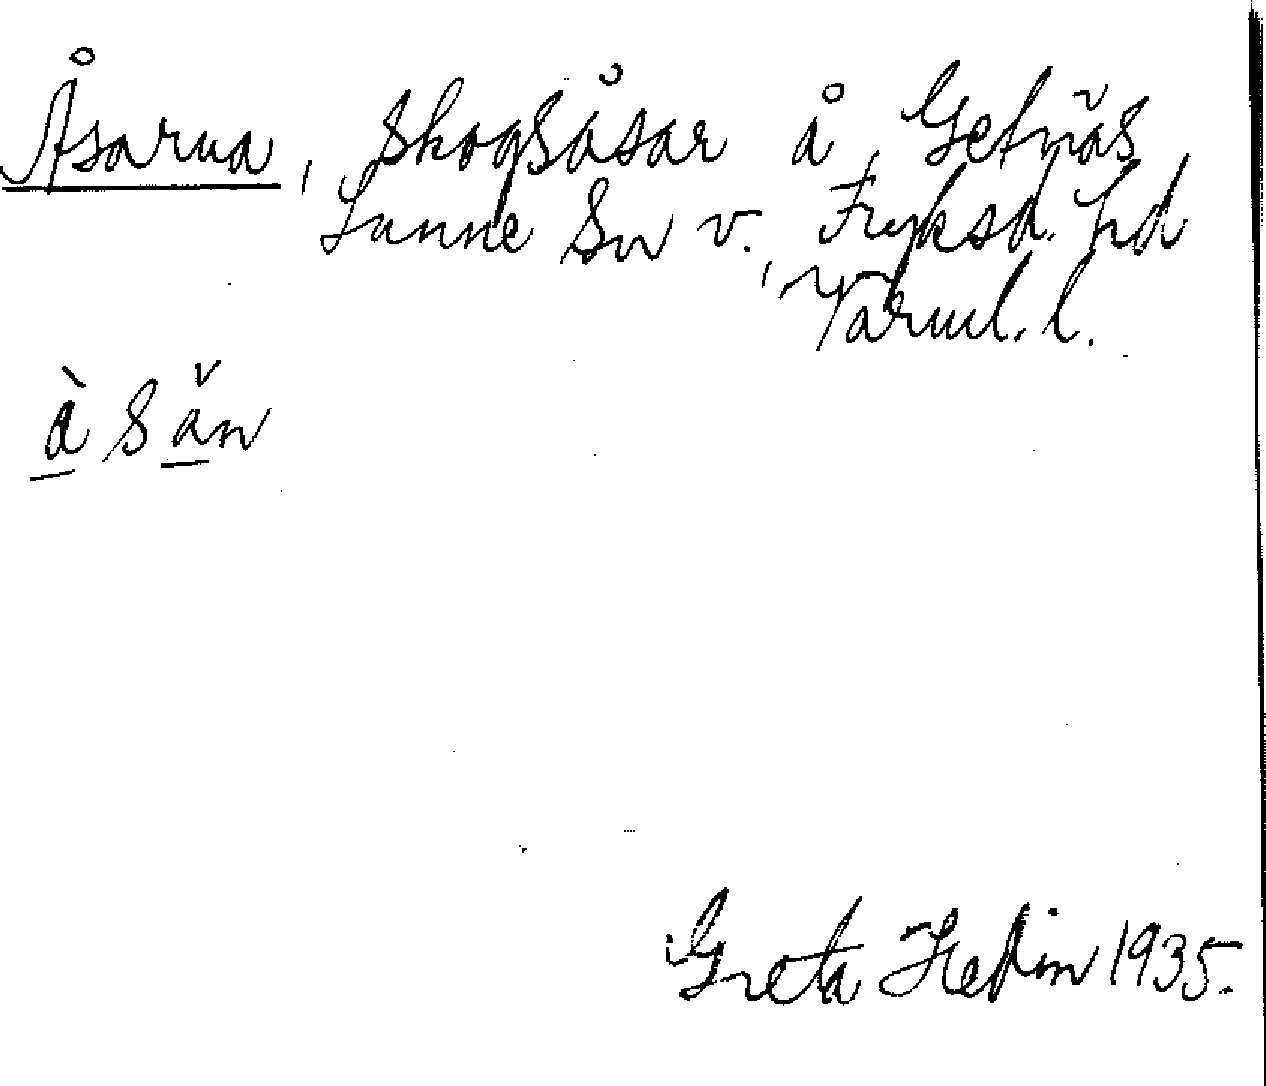 Åsarna, skogsåsar å Getnäs,
Sunne Sn v. Fryksd. hd
Värml. l.
àsăn
Greta Hedin 1935.